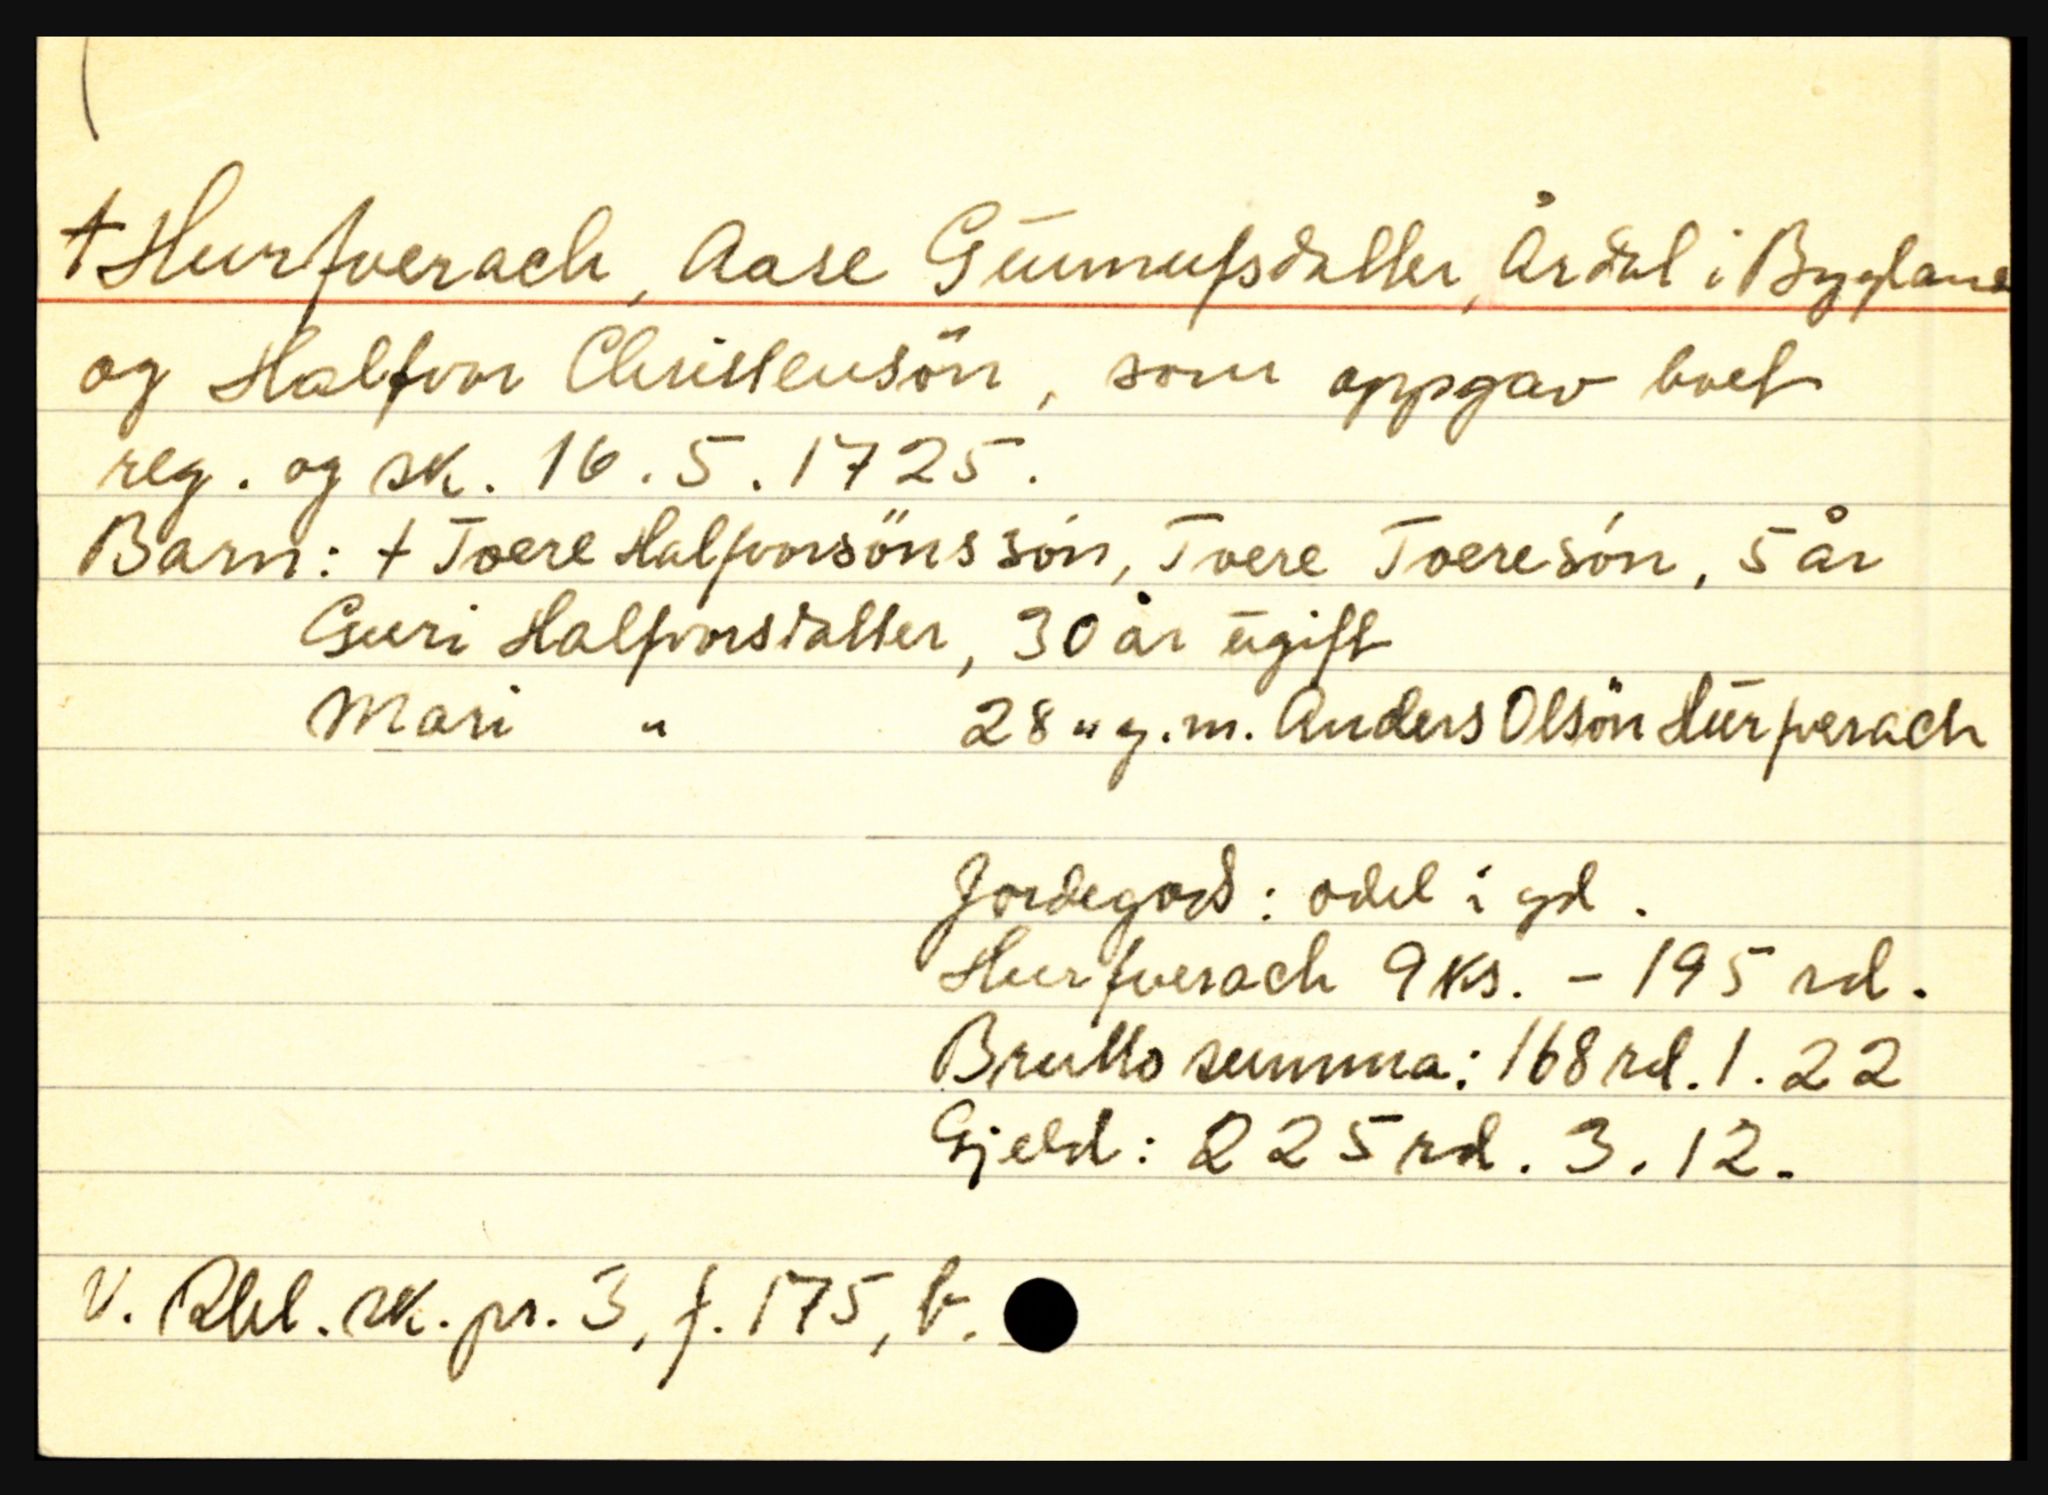 † Hurfverach, Aase Gunnufsdatter, Årdal i Bygland
og Halfvor Christensön, som oppgav boet
reg. og sk. 16.5.1725.
Barn: † Toere Halfvorsöns son, Tvere Toeresón, 5 år
Guri Halfvorsdatter, 30 år ugift
Mari " 28 " g.m. Anders Olsön Hurfverach
Jordegods: odel i gd.
Hurfverach 9 ks. - 195 rd.
Brutto summa: 168 rd. 1. 22
Gjeld: 225 rd. 3. 12.
V. Rbl. sk. pr. 3, f. 175, b.